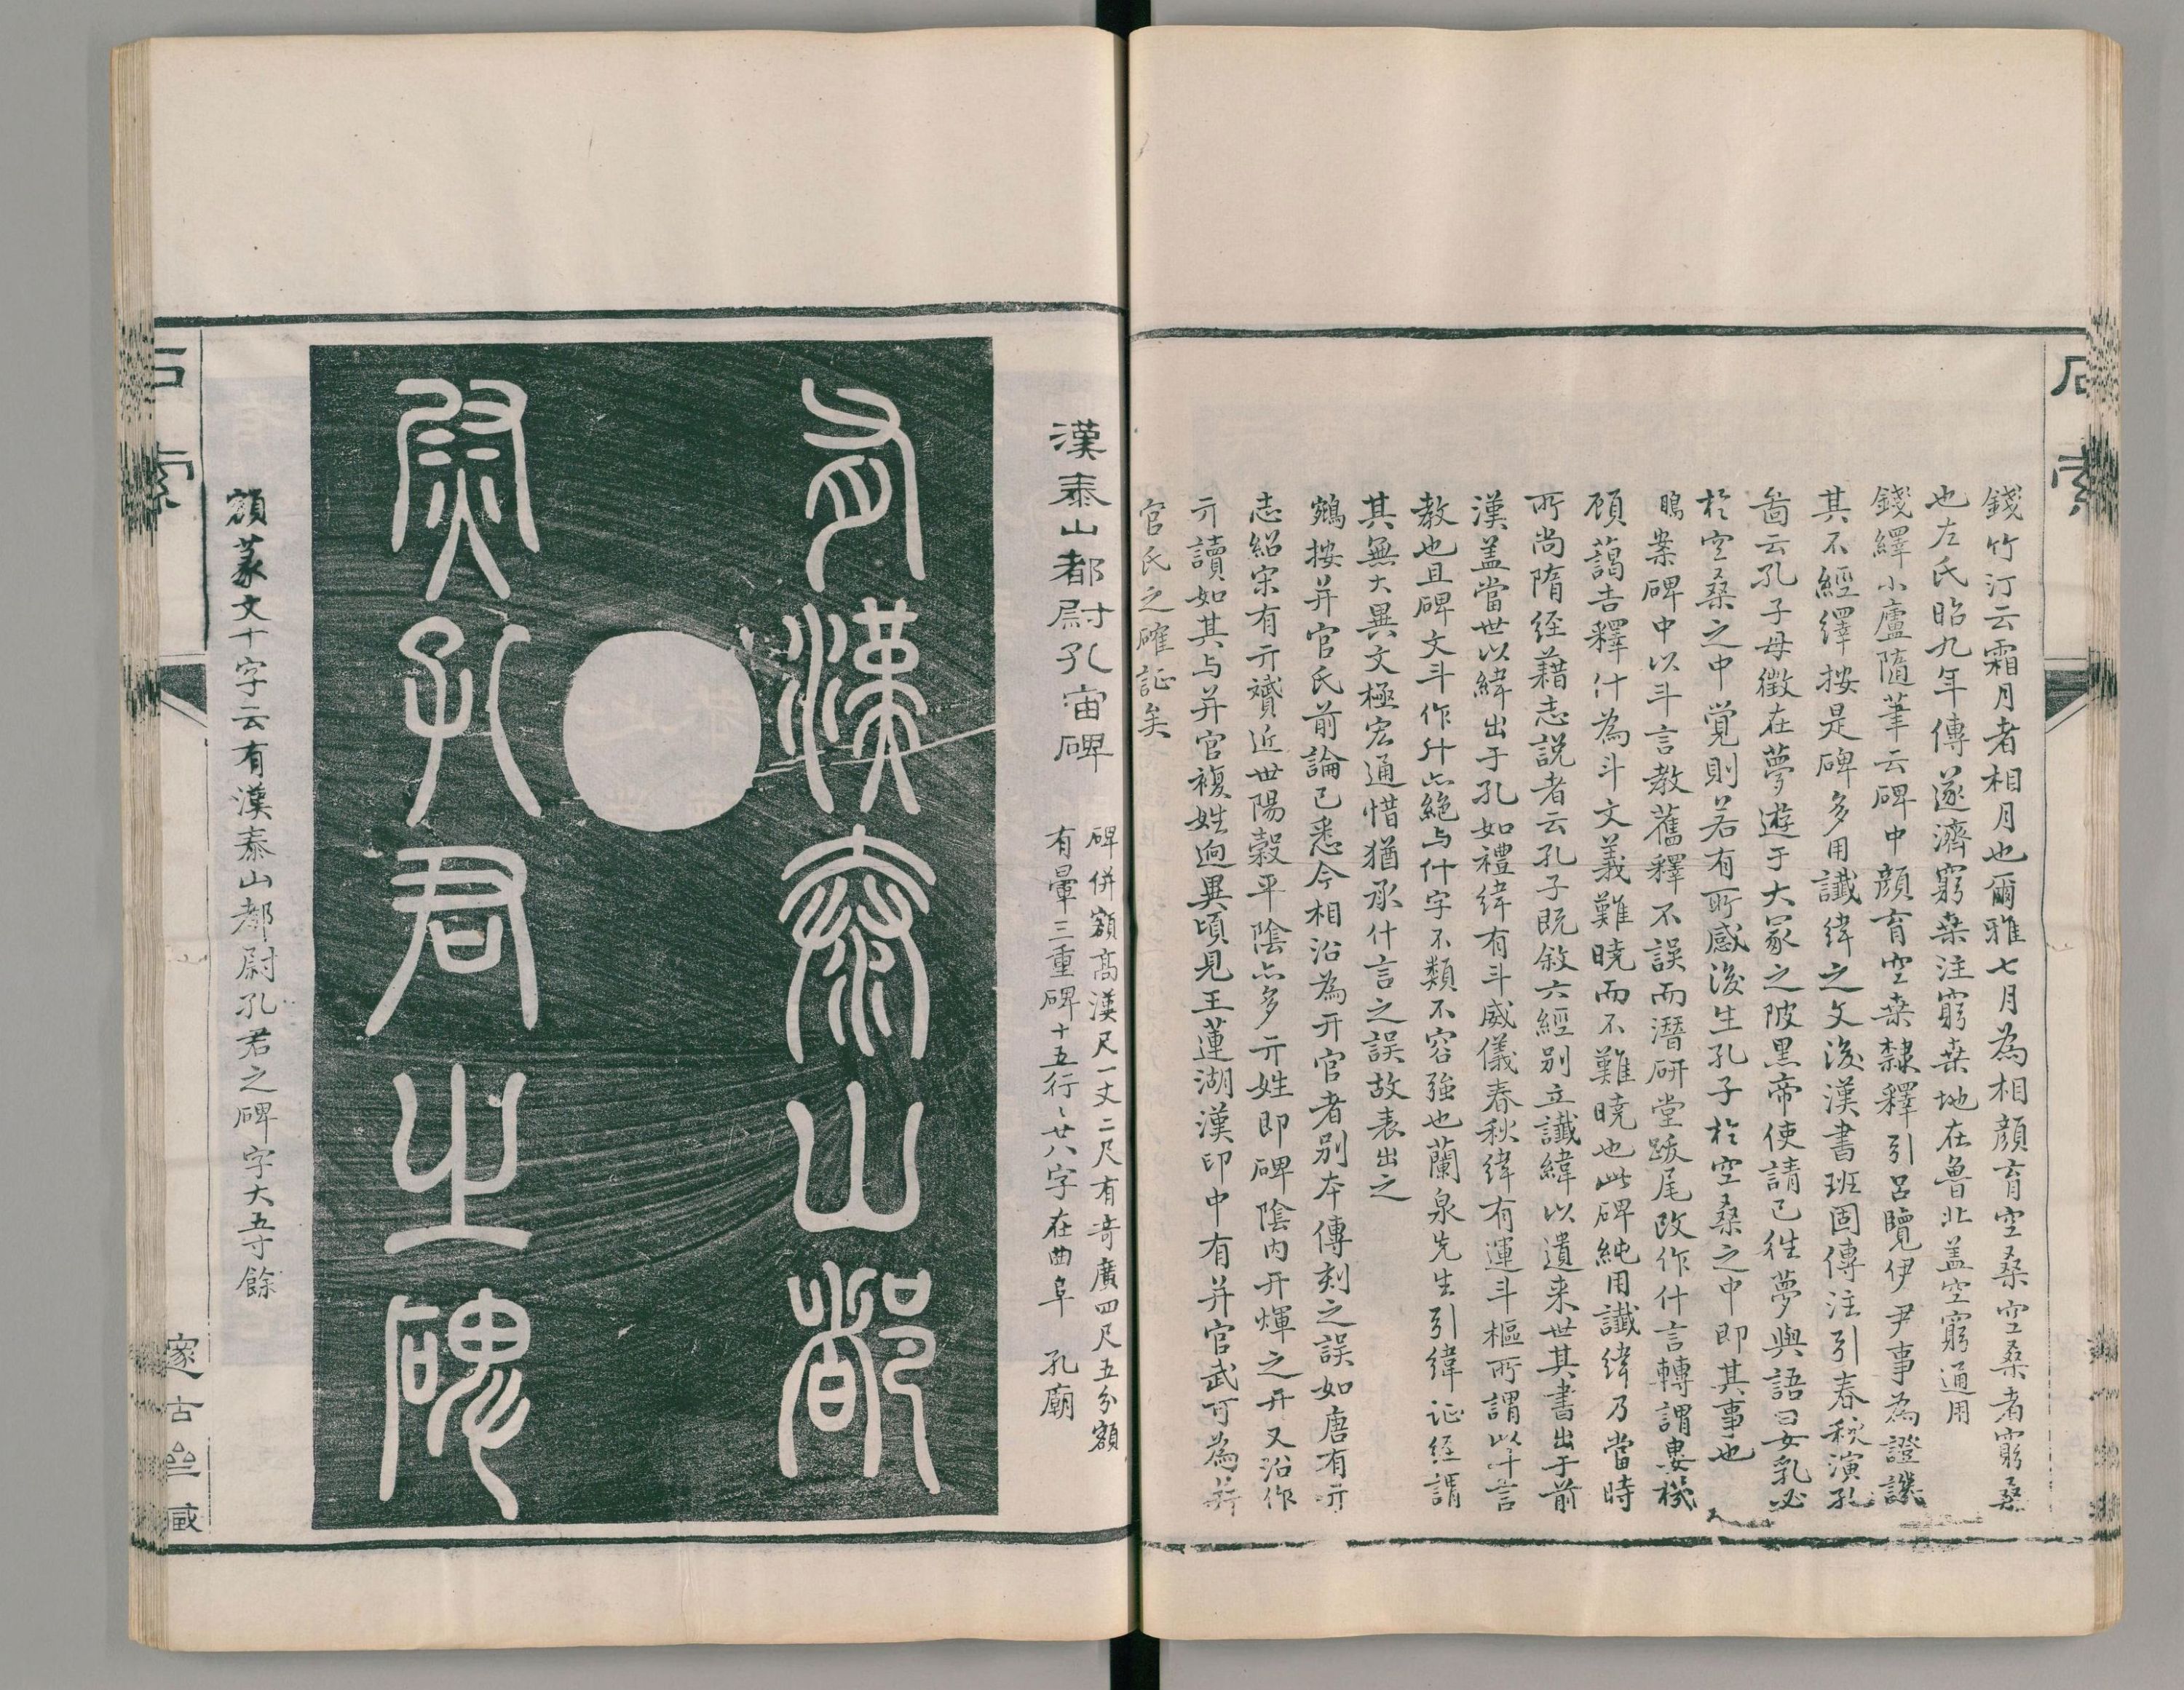 錢竹汀云霜月者相月也爾雅七月為相顏育空桑空桑者窮桑
也左氏昭九年傳遂濟窮桒注窮桒地在魯北盖空窮通用
錢繹小廬隨筆云碑中顏育空桒隸釋引呂覽伊尹事為證譏
其不經繹按是碑多用讖緯之文後漢書班固傳注引春秋演孔
啚云孔子母徵在夢遊于大冢之陂黑帝使請已徃夢與語曰女乳必
於空桑之中覺則若有所感後生孔子於空桑之中即其事也
鵾案碑中以斗言教舊釋不誤而潛研堂跋尾改作什言轉謂婁機
顧藹吉釋什為斗文義難曉而不難曉也此碑純用讖緯乃當時
所尚隋經藉志說者云孔子既敘六經别立讖緯以遺来世其書出于前
漢盖當世以緯出于孔如禮緯有斗威儀春秋緯有運斗樞所謂以斗言
教也且碑文斗作升亦絶与什字不類不容強也蘭泉先生引緯证經謂
其無大異文極宏通惜猶承什言之誤故表出之
鵷按并官氏前論已悉今相沿為开官者别本傳刻之誤如唐有亓
志紹宋有亓贇近世陽穀平陰亦多亓姓即碑陰内开煇之开又沿作
亓讀如其与并官複姓迥異頃見王蓮湖漢印中有并官武可為并
官氏之確証矣
石索
漢泰山都尉孔宙碑
碑併額高漢尺一丈二尺有奇廣四尺五分額
有暈三重碑十五行〻廿八字在曲阜 孔廟
有漢泰山都
尉孔君之碑
額篆文十字云有漢泰山都尉孔君之碑字大五寸餘
石索
邃古齋藏